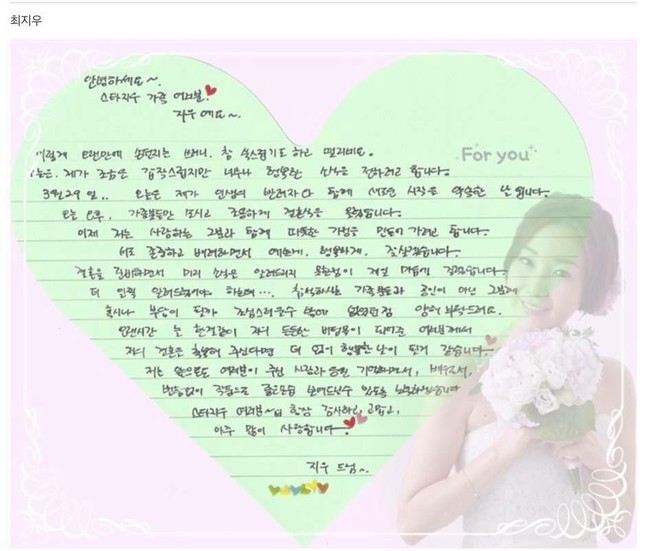 최지우
안녕하세요~.
스타지우 가족 여러분.
지우예요~.
이렇게 오랜만에 손편지를 쓰려니, 참 쑥스럽기도 하고 떨리네요.
오늘은. 제가 조금은 갑작스럽지만 너무나 행복한 소식을 전하려고 합니다.
3월29일.. 오늘은 제가 인생의 반려자와 함께 새로운 시작을 약속한 날입니다.
오늘 오후, 가족분들만 모시고 조용하게 결혼식을 올리게됩니다.
For you
이제 저는 사랑하는 그분과 함께 따뜻한 가정을 만들어 가려고 합니다.
서로 존중하고 배려하면서 예쁘게. 행복하게. 잘살겠습니다.
결혼을 준비하면서 미리 소식을 알려드리지 못한점이 제일 마음에 걸렸습니다.
더 일찍 알려드렸어야 하는데···. 참석하시는 가족분들과 공인이 아닌 그분께
혹시나 부담이 될까 조심스러울수 밖에 없었던점 양해 부탁드려요.
오랜시간 늘 한결같이 저의 든든한 버팀목이 되어준 여러분께서
저의 결혼을 축복해 주신다면 더 없이 행복한 날이 될거 같습니다.
저는 앞으로도 여러분이 주신 사랑과 응원 기억하면서, 배우로서,
변함없이 작품으로 좋은모습 보여드릴수 있도록 노력하겠습니다
스타지우 여러분~ 항상 감사하고, 고맙고,
아주 많이 사랑합니다.
지우 드림~.